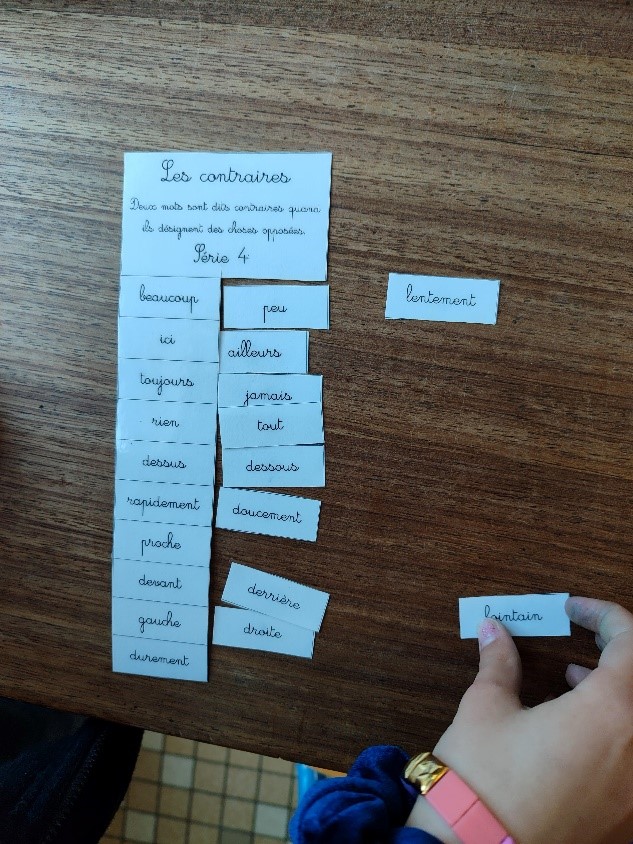 Les contraires
Deux mots sont dits contraires quand
ils désignent des choses opposées.
Série 4
beaucoup peu lentement
ici ailleurs
toujours jamais
rien tout
dessus dessous
rapidement doucement
proche
devant derrière
gauche droite lointain
durement